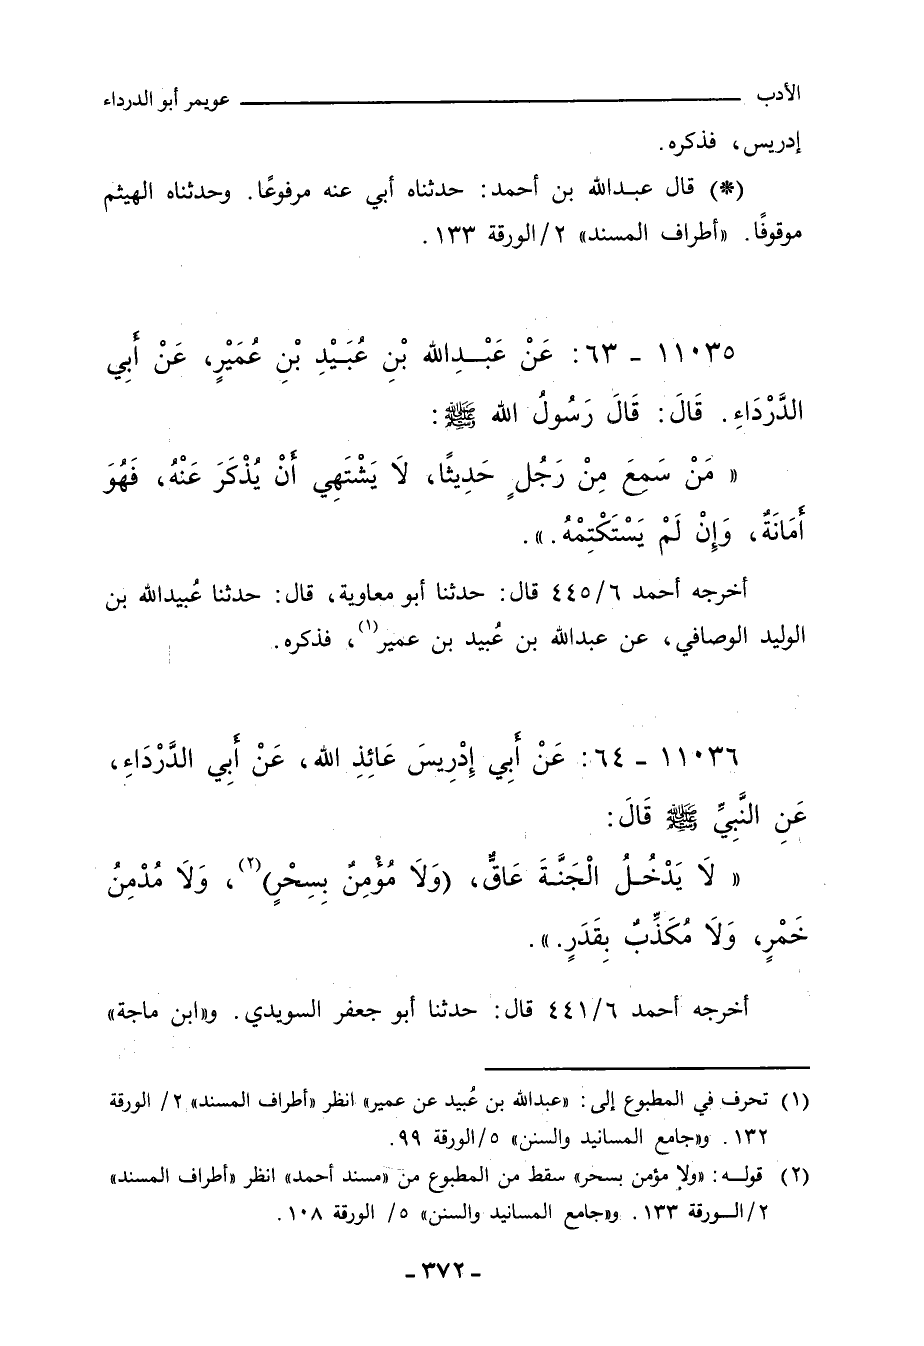 الأدب ـــــــــــــــــــــــــــــــــ عويمر أبو الدرداء
إدريس، فذكره.
(*) قال عبدالله بن أحمد: حدثناه أبي عنه مرفوعًا. وحدثناه الهيثم
موقوفًا. «أطراف المسند» ٢/الورقة ١٣٣.
١١٠٣٥ ـ ٦٣: عَنْ عَبْدِالله بْنِ عُبَيْدِ بْنِ عُمَيْرٍ، عَنْ أَبِي
الدَّرْدَاءِ. قَالَ: قَالَ رَسُولُ الله ﷺ:
« مَنْ سَمِعَ مِنْ رَجُلٍ حَدِيثًا، لاَ يَشْتَهِي أَنْ يُذْكَرَ عَنْهُ، فَهُوَ
أَمَانَةٌ، وَإِنْ لَمْ يَسْتَكْتِمْهُ.».
أخرجه أحمد ٤٤٥/٦ قال: حدثنا أبو معاوية، قال: حدثنا عُبيدالله بن
الوليد الوصافي، عن عبدالله بن عُبيد بن عمير(١)، فذكره.
١١٠٣٦ ـ ٦٤: عَنْ أَبِي إِدْرِيسَ عَائِذِ الله، عَنْ أَبِي الدَّرْدَاءِ،
عَنِ النَّبِيِّ ﷺ قَالَ:
« لَا يَدْخُلُ الْجَنَّةَ عَاقٌّ، (وَلَا مُؤْمِنٌ بِسِحْرٍ)(٢)، وَلَا مُدْمِنُ
خَمْرٍ، وَلَا مُكَذِّبٌ بِقَدَرٍ.».
أخرجه أحمد ٤٤١/٦ قال: حدثنا أبو جعفر السويدي. و«ابن ماجة»
(١) تحرف في المطبوع إلى: «عبدالله بن عُبيد عن عمير» انظر «أطراف المسند» ٢/ الورقة
١٣٢. و«جامع المسانيد والسنن» ٥/الورقة ٩٩.
(٢) قوله: «ولا مؤمن بسحر» سقط من المطبوع من «مسند أحمد» انظر «أطراف المسند»
٢/الورقة ١٣٣. و«جامع المسانيد والسنن» ٥/ الورقة ١٠٨.
ـ ٣٧٢ ـ